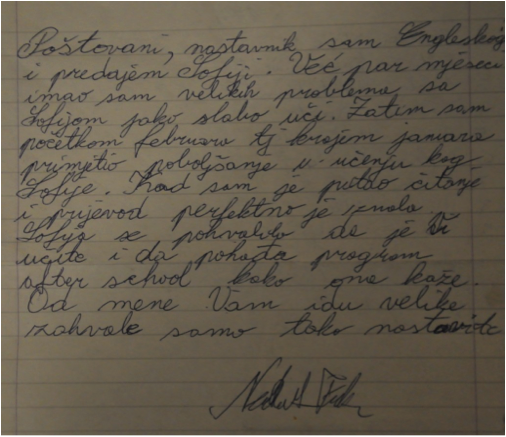 Poštovani, nastavnik sam Engleskog
i predajem Sofiji. Već par mjeseci
imao sam velikih problema sa
Sofijom jako slabo uči. Zatim sam
početkom februara tj krajem januara
primjetio poboljšanje u učenju kog
Sofije. Kad sam je pitao čitanje
i prijevod perfektno je znala.
Sofija se pohvalila da je Vi
učite i da pohađa program
after school kako ona kaže.
Od mene Vam idu velike
zahvale samo tako nastavite